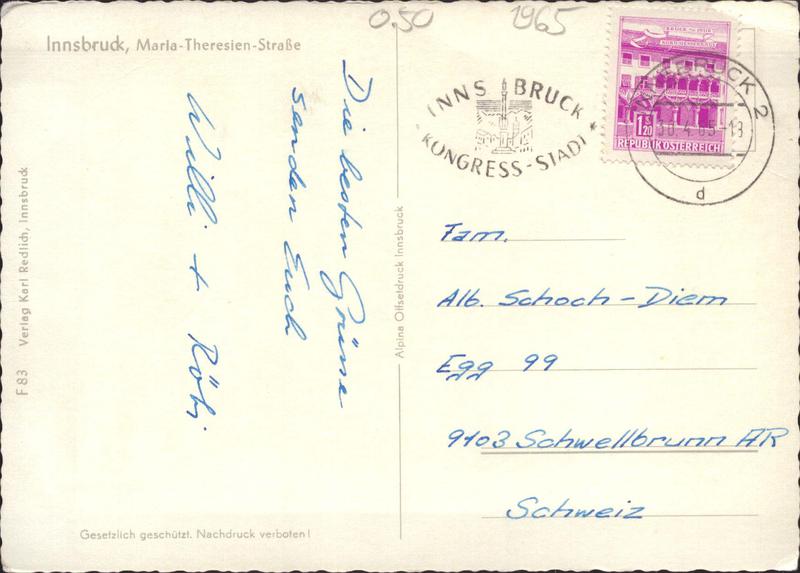 0.50 1965
Innsbruck, Maria-Theresien-Straße
INNSBRUCK
KONGRESS-STADT
REPUBLIK ÖSTERREICH
1 S 20
2
30.4.65-18
d
Die besten Grüsse
senden Euch
Willi + Röbi
Fam.
Alb. Schoch-Diem
Egg 99
9103 Schwellbrunn AR
Schweiz
F 83 Verlag Karl Redlich, Innsbruck
Alpina Offsetdruck Innsbruck
Gesetzlich geschützt. Nachdruck verboten!